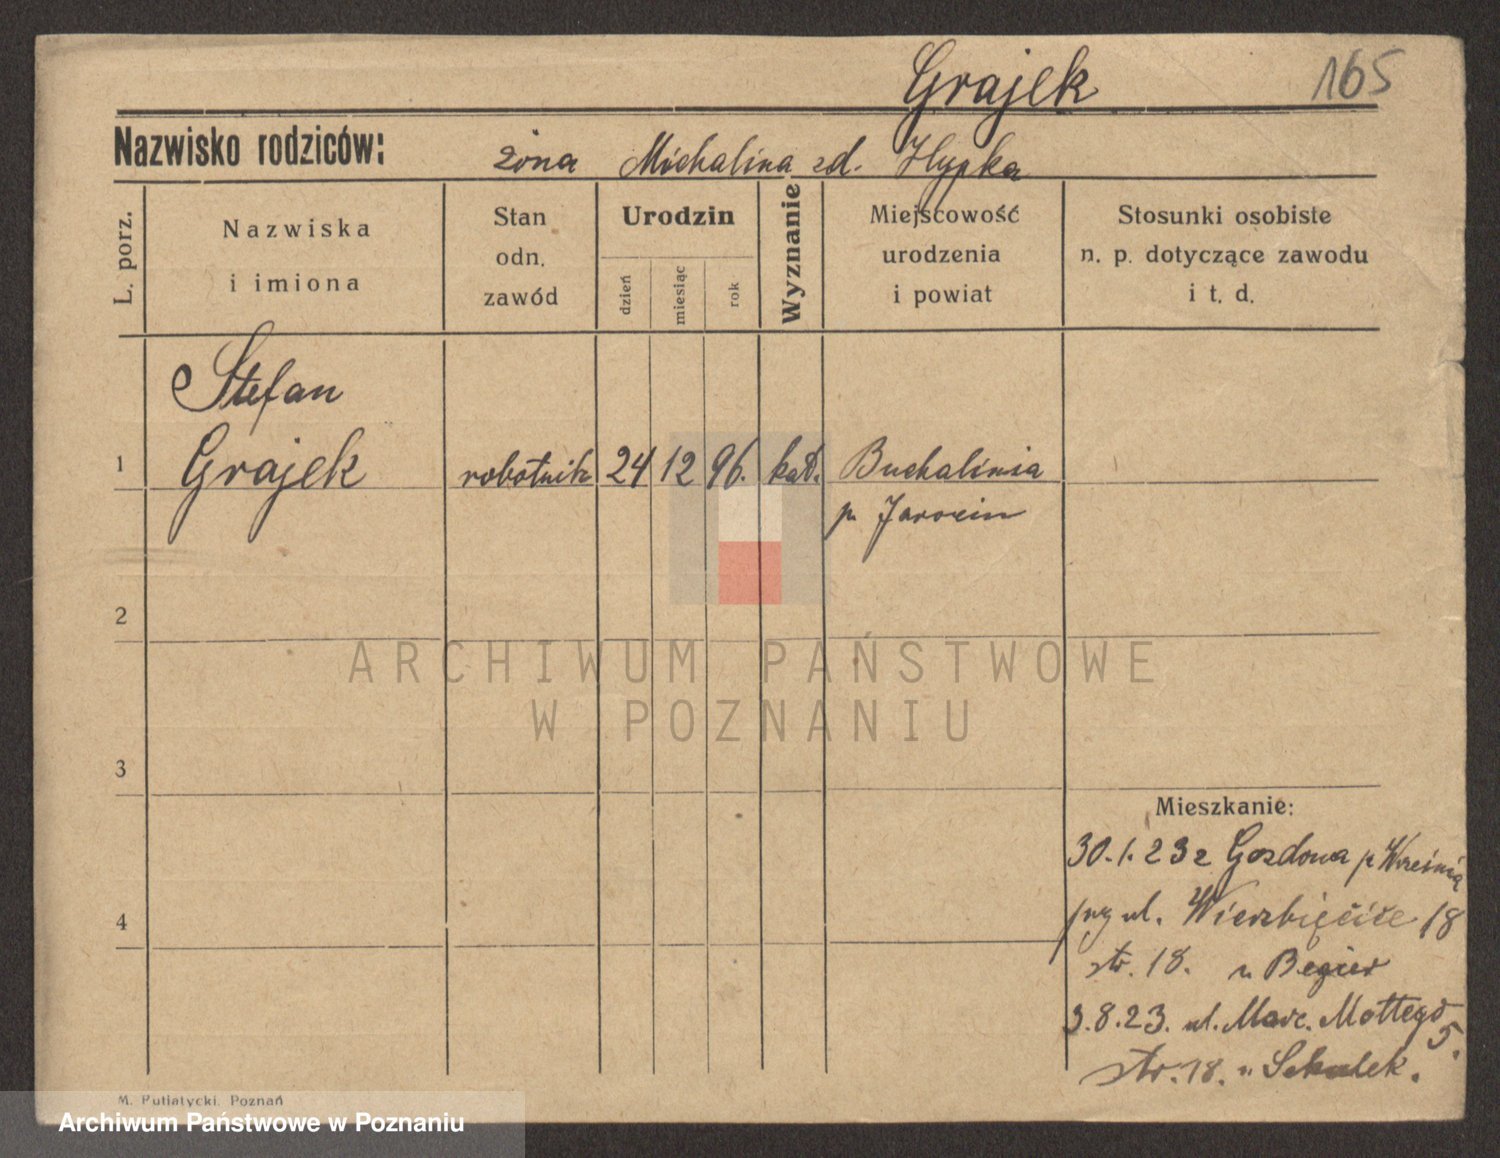 Grajek 165
Nazwisko rodziców: żona Michalina zd. Hypka
L. porz.
Nazwiska
i imiona
Stan
odn.
zawód
Urodzin
dzień
miesiąc
rok
Wyznanie
Miejscowość
urodzenia
i powiat
Stosunki osobiste
n. p. dotyczące zawodu
i t. d.
Stefan
1 Grajek robotnik 24 12 96. kat. Buchalinia
p. Jarocin
2
ARCHIWUM PAŃSTWOWE
W POZNANIU
3
Mieszkanie:
30.1.23 z Gozdowa p Wrześnią
4
ul. Wierzbięcice 18
str. 18. u Begier
3.8.23. ul. Marc. Mottego 5.
str. 18. u Sekulek.
M. Putiatycki. Poznań
Archiwum Państwowe w Poznaniu